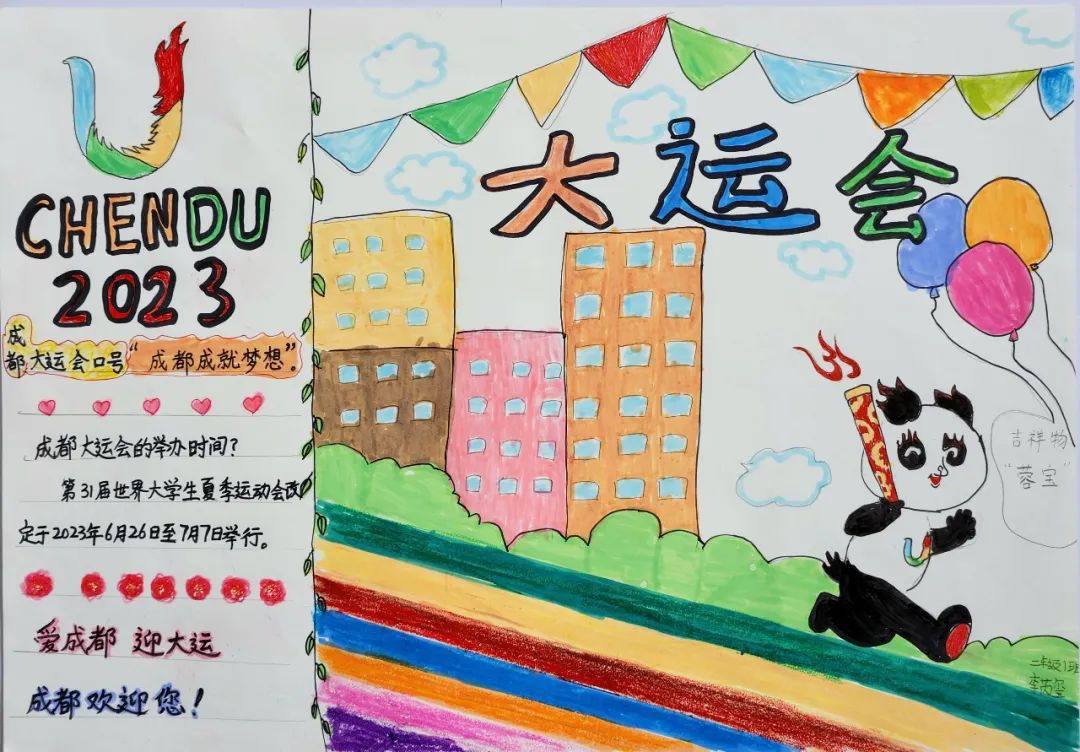 CHENDU
2023
成都大运会口号“成都成就梦想”。
成都大运会的举办时间？
第31届世界大学生夏季运动会改
定于2023年6月26日至7月7日举行。
爱成都 迎大运
成都欢迎您！
大运会
吉祥物
“蓉宝”
二年级1班